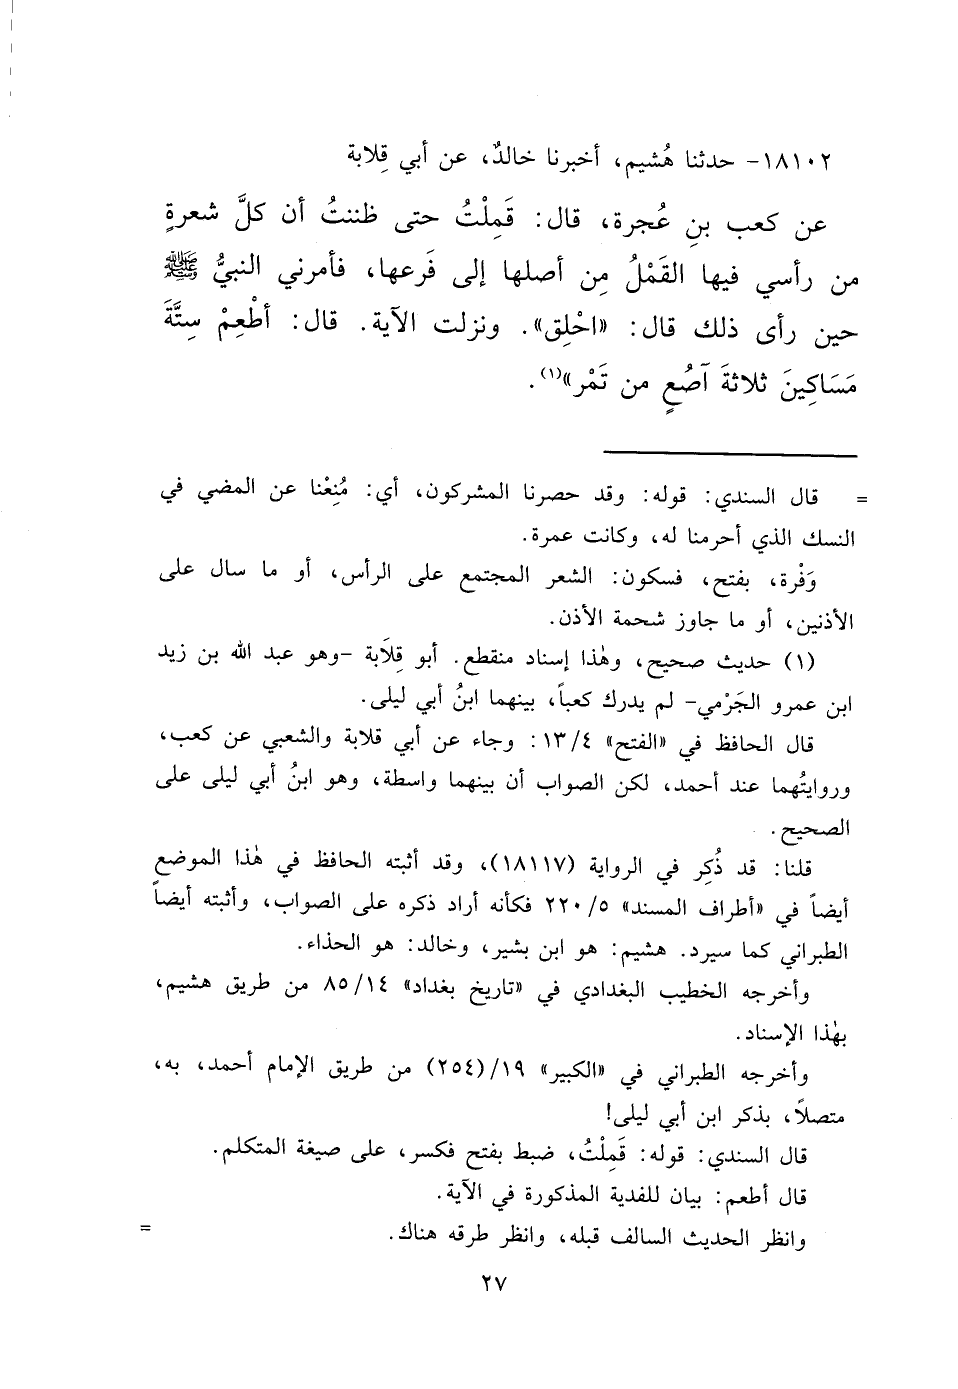 ١٨١٠٢- حدثنا هُشيم، أخبرنا خالدٌ، عن أبي قِلابة
عن كعب بنِ عُجرة، قال: قَمِلْتُ حتى ظننتُ أن كلَّ شعرةٍ
من رأسي فيها القَمْلُ مِن أصلها إلى فَرعها، فأمرني النبيُّ ﷺ
حين رأى ذلك قال: «احْلِق». ونزلت الآية. قال: أطْعِمْ سِتَّةَ
مَسَاكِينَ ثلاثةَ آصُعٍ من تَمْر»(١).
= قال السندي: قوله: وقد حصرنا المشركون، أي: مُنِعْنا عن المضي في
النسك الذي أحرمنا له، وكانت عمرة.
وَفْرة، بفتح، فسكون: الشعر المجتمع على الرأس، أو ما سال على
الأذنين، أو ما جاوز شحمة الأذن.
(١) حديث صحيح، وهٰذا إسناد منقطع. أبو قِلَابة -وهو عبد الله بن زيد
ابن عمرو الجَرْمي- لم يدرك كعباً، بينهما ابنُ أبي ليلى.
قال الحافظ في «الفتح» ١٣/٤: وجاء عن أبي قلابة والشعبي عن كعب،
وروايتُهما عند أحمد، لكن الصواب أن بينهما واسطة، وهو ابنُ أبي ليلى على
الصحيح.
قلنا: قد ذُكِر في الرواية (١٨١١٧)، وقد أثبته الحافظ في هٰذا الموضع
أيضاً في «أطراف المسند» ٢٢٠/٥ فكأنه أراد ذكره على الصواب، وأثبته أيضاً
الطبراني كما سيرد. هشيم: هو ابن بشير، وخالد: هو الحذاء.
وأخرجه الخطيب البغدادي في «تاريخ بغداد» ٨٥/١٤ من طريق هشيم،
بهٰذا الإسناد.
وأخرجه الطبراني في «الكبير» ١٩/(٢٥٤) من طريق الإمام أحمد، به،
متصلاً، بذكر ابن أبي ليلى!
قال السندي: قوله: قَمِلْتُ، ضبط بفتح فكسر، على صيغة المتكلم.
قال أطعم: بيان للفدية المذكورة في الآية.
وانظر الحديث السالف قبله، وانظر طرقه هناك. =
٢٧